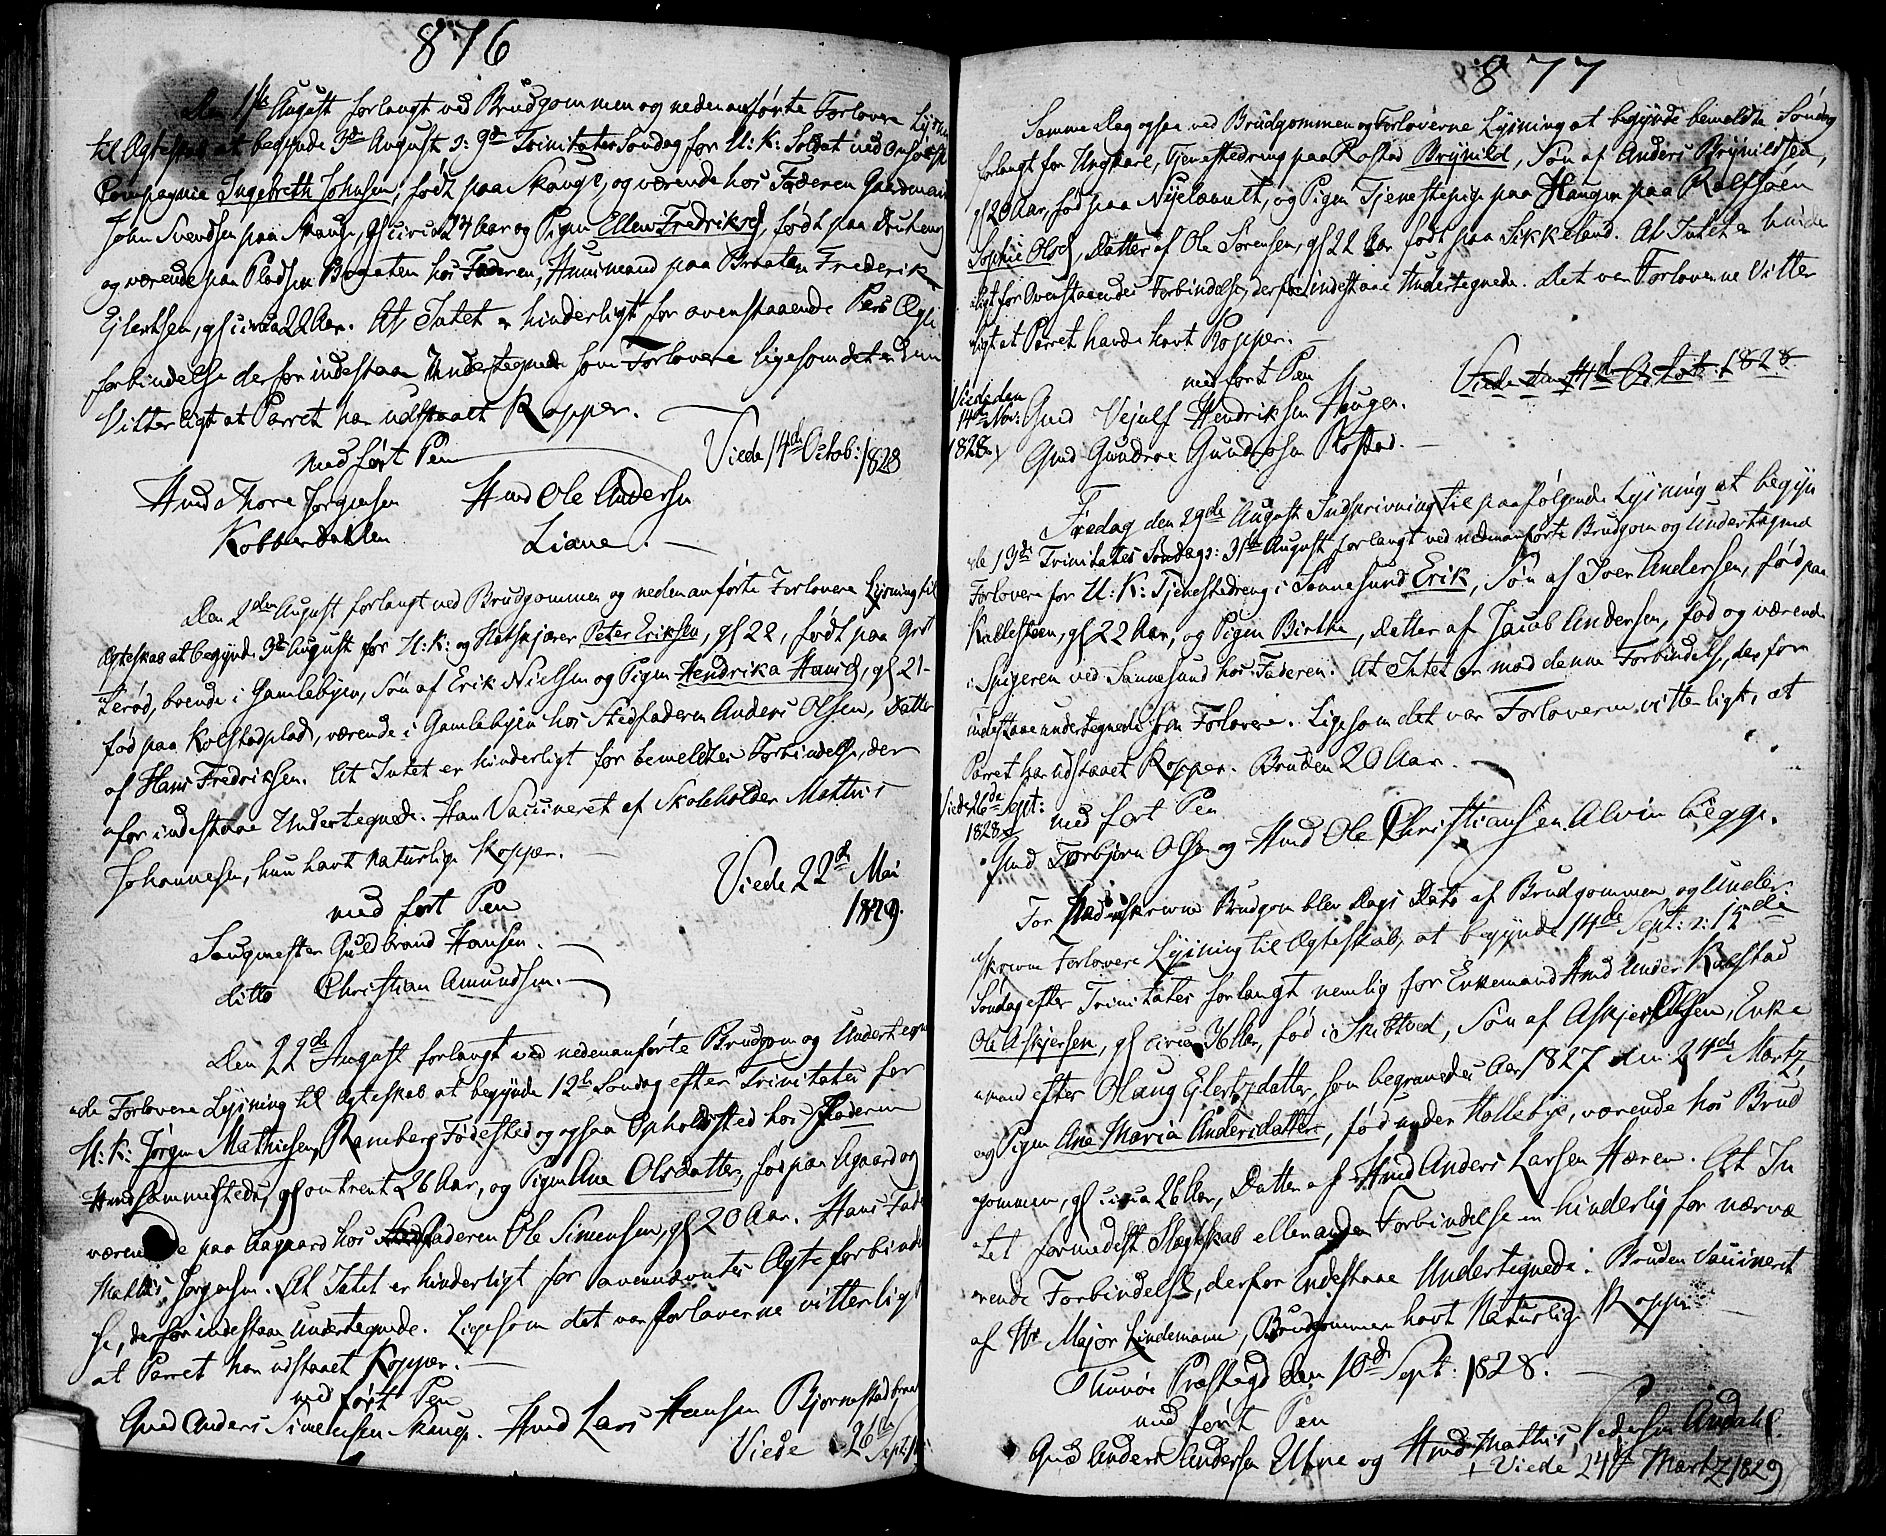 876
Den 1ste August forlangt ved Brudgommen og nedenanførte Forlovere Lysning
til Ægteskab at begynde 3de August ɔ: 9de Trinitatis Søndag for U: K: Soldat ved
Compagnie Ingebreth Johnsen, født paa Skauge, og værende hos Faderen Gaardmand
John Svendsen paa Skauge, gl circa 24 Aar og Pigen Ellen Fredriksd, født paa
og værende paa Pladsen Braaten hos Faderen, Huusmand paa Braaten Frederik
Ejlertsen, gl circa 22 Aar. At Intet er hinderligt for ovenstaaende Pars Ægte
forbindelse derfor indestaae Undertegnede som Forlovere ligesom det er dem
Vitterligt at Parret har udstaaet Kopper.
med ført Pen
Viede 14de Octob: 1828
Hmd Thore Jørgensen Hmd Ole Andersen
Kobberdahlen Liane.
Den 2den August forlangt ved Brudgommen og nedenanførte Forlovere Lysning til
Ægteskab at begynde 3de August for U: K: og Peter Eriksen, gl 22, født paa
boende i Gamlebyen, Søn af Erik Nielsen og Pigen Hendrika Hansd, gl 21
fød paa Kolstadplads, værende i Gamlebyen hos Stedfaderen Anders Olsen, Datter
af Hans Fredriksen. At Intet er hinderligt for bemeldte Forbindelse, der
for indestaae Undertegnede. Han Vaccineret af Skoleholder Mathis
Johannesen, hun havt naturlige Kopper.
med ført Pen
Viede 22de Mai
1829.
Saugmester Guldbrand Hansen.
ditto Christian Amundsen.
Den 22de August forlangt ved nedenanførte Brudgom og Undertegne
de Forlovere Lysning til Ægteskab at begynde 12te Søndag efter Trinitatis for
U: K: Jørgen Mathiesen, Ramberg Fødested og ogsaa Opholdsted hos Faderen
Hmd sammesteds, gl omtrent 26 Aar, og Pigen Ane Olsdatter, fød paa Agaard og
værende paa Aagaard hos Faderen Ole Simensen, gl 20 Aar. Hans Fader
Mathis Jørgensen. At Intet er hinderligt for ovennævnte Ægteforbindel
se, derfor indestaae Undertegnede. Ligesom det var forloverne vitterligt
at Parret har udstaaet Kopper.
med ført Pen
Gmd Anders Simensen Skauge. Hmd Lars Hansen Bjørnestad
Viede 26de Sept
877
Samme Dag ogsaa ved Brudgommen og Forloverne Lysning at begynde bemeldte Søndag
forlangt for Ungkarl, Tjenestedreng paa Rostad Brynild, Søn af Anders Brynildsen,
gl 20 Aar, fød paa og Pigen Tjenestepige paa Haugen paa Rolfsøen
Sophie Olsd, Datter af Ole Sørensen, gl 22 Aar født paa Sikkeland. At Intet er hinder
ligt for Ovenstaaendes Forbindelse, derfor indestaae Undertegnede. Det var Forloverne Vitter
ligt at Parret havde havt Kopper.
med ført Pen
Viede den 14de Octob: 1828
Viede den
14de Nov:
1828
Gmd Vejulf Hendriksen Haugen.
Gmd Gundroe Gundersen Rostad.
Fredag den 29de August Indskrivning til paafølgende Lysning at begyn
de 13de Trinitatis Søndag ɔ: 31te August forlangt ved nedenanførte Brudgom og Undertegnede
Forlovere for U: K: Tjenestedreng i Sannesund Erik, Søn af Iver Andersen, fød paa
Kallesteen, gl 22 Aar, og Pigen Birthe, Datter af Jacob Andersen, fød og værende
i Spigeren ved Sannesund hos Faderen. At Intet er mod denne Forbindelse, derfor
indestaae undertegnede som Forlovere. Ligesom det var Forloverne vitterligt, at
Parret har udstaaet Kopper. Bruden 20 Aar.
Viede 26de Sept:
1828
med ført Pen
Gmd Torbjørn Olsen og Hmd Ole Christiansen Alvim begge.
For Brudgom blev Dags Dato af Brudgommen og Under
skrevne Forlovere Lysning til Ægteskab, at begynde 14de Sept: ɔ: 15de
Søndag efter Trinitatis forlangt nemlig for Enkemand Hmd under Kolstad
Ole Askjersen, gl circa 36 Aar, fød i Skibtved, Søn af Askjer Olsen, Enke
mand efter Olaug Ejlertsdatter, som begravedes Aar 1827 den 24de Martz,
og Pigen Ane Maria Andersdatter, fød under Hollebye, værende hos Brud
gommen, gl circa 26 Aar, Datter af Hmd Anders Larsen Hæren. At In
tet formedelst Slægtskab eller anden Forbindelse er hinderlig for nærvæ
rende Forbindelse, derfor Indestaae Undertegnede. Bruden Vaccineret
af Hr Major Lindemann, Brudgommen havt Naturlige Kopper
Thunøe Præstegd den 10de Sept: 1828.
med ført Pen
Gmd Anders Andersen Utne og Hmd Mathis Pedersen Aadahl.
Viede 24de Martz 1829